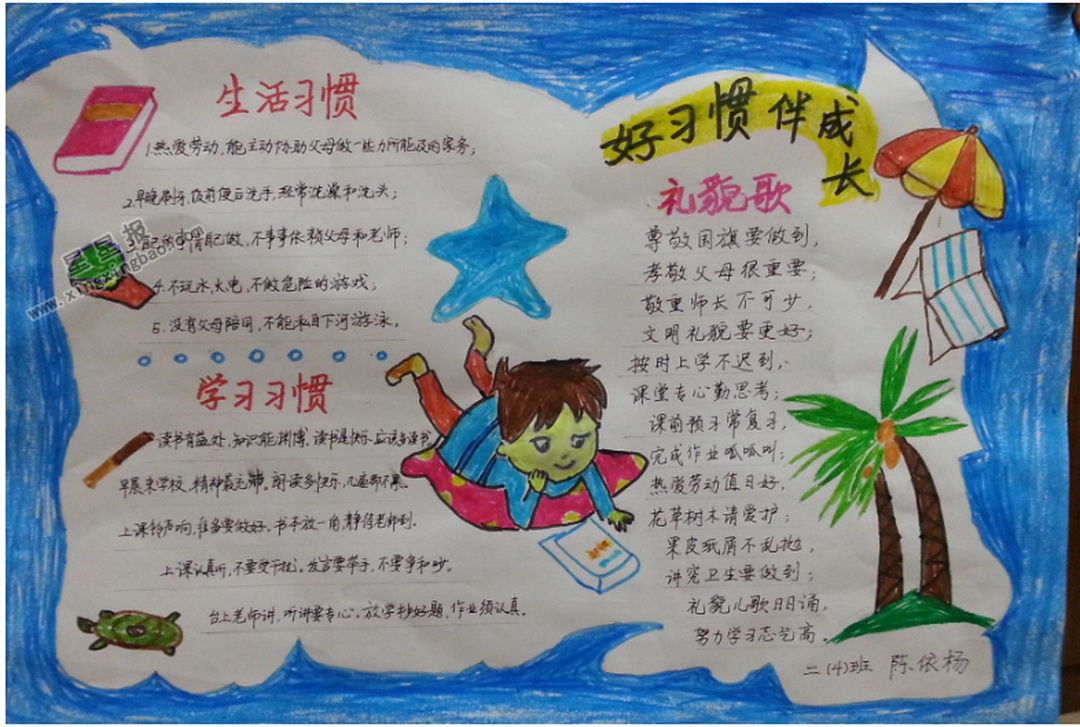 生活习惯
1.热爱劳动,能主动协助父母做一些力所能及的家务;
2.早晚刷牙,饭前便后洗手,经常洗澡和洗头;
自己的事情自己做,不事事依赖父母和老师;
4.不玩水、火、电,不做危险的游戏;
5.没有父母陪同,不能私自下河游泳。
星星报
www.xingxingbao.com
学习习惯
读书有益处,知识能渊博,读书是快乐,应该多读书
早晨来学校,精神最充沛。朗读多快乐,儿童都不累。
上课铃声响,准备要做好,书本放一角,静待老师到。
上课认真听,不要受干扰。发言要举手,不要争和吵。
台上老师讲,听讲要专心。放学抄好题,作业须认真。
好习惯伴成长
礼貌歌
尊敬国旗要做到,
孝敬父母很重要;
敬重师长不可少,
文明礼貌要更好;
按时上学不迟到,
课堂专心勤思考;
课前预习常复习,
完成作业呱呱叫;
热爱劳动值日好,
花草树木请爱护;
果皮纸屑不乱抛,
讲究卫生要做到;
礼貌儿歌日日诵,
努力学习志气高。
二(4)班 陈依杨